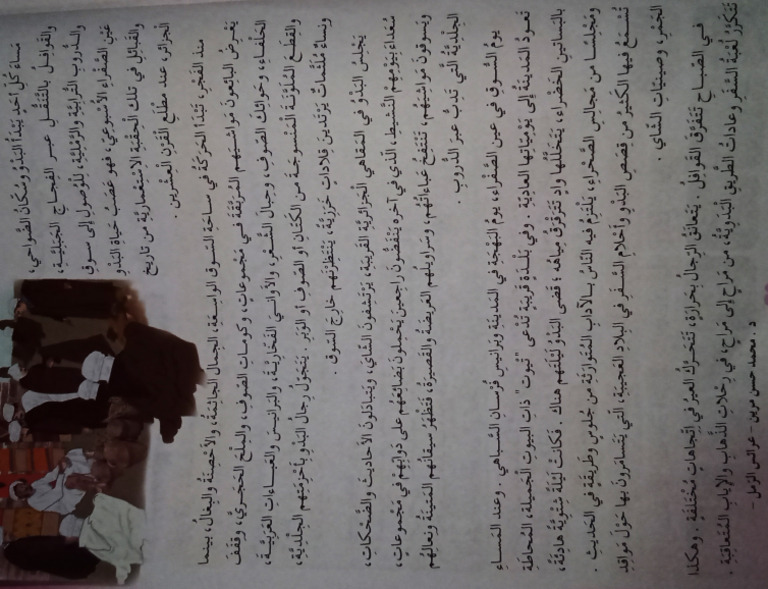 مَسَاءَ كُلِّ أَحَدٍ يَبْدَأُ البَدْوُ وَسُكَّانُ الضَّوَاحِي،
وَالقَوَافِلُ بِالتَّنَقُّلِ عَبْرَ الفِجَاجِ الجَبَلِيَّةِ،
وَالدُّرُوبِ التُّرَابِيَّةِ وَالرَّمْلِيَّةِ، لِلْوُصُولِ إِلَى سُوقِ
عَيْنِ الصَّفْرَاءِ الأُسْبُوعِيِّ، فَهُوَ عَصَبُ حَيَاةِ البَدْوِ
وَالقَبَائِلِ فِي تِلْكَ الحِقْبَةِ الاِسْتِعْمَارِيَّةِ مِنْ تَارِيخِ
الجَزَائِرِ، عِنْدَ مَطْلَعِ القَرْنِ العِشْرِينَ .
مُنْذُ الفَجْرِ، تَبْدَأُ الحَرَكَةُ فِي سَاحَةِ السُّوقِ الوَاسِعَةِ، الجِمَالُ الجَاثِمَةُ، وَالأَحْصِنَةُ وَالبِغَالُ، بَيْنَمَا
يَعْرِضُ البَائِعُونَ مَوَاشِيَهُمْ المُتَفَرِّقَةَ فِي مَجْمُوعَاتٍ، وَكَوْمَاتِ الصُّوفِ، وَالمِلْحَ الحَجَرِيَّ، وَقُفَفَ
الحَلْفَاءِ، وَحَوَائِكَ الصُّوفِ، وَحِبَالَ الشَّعْرِ، وَالأَوَانِيَ الفَخَّارِيَّةَ، وَالبَرَانِيسَ وَالعَبَاءَاتِ العَرَبِيَّةَ،
وَالقِطَعَ المُلَوَّنَةَ المَنْسُوجَةَ مِنَ الكَتَّانِ أَوِ الصُّوفِ أَوِ الوَبَرِ. يَتَجَوَّلُ رِجَالُ البَدْوِ بِأَحْزِمَتِهِمْ الجِلْدِيَّةِ،
وَنِسَاءٌ مُلَثَّمَاتٌ يَرْتَدِينَ قِلَادَاتٍ خَرَزِيَّةً، يَنْتَظِرْنَهُمْ خَارِجَ السُّوقِ .
يَجْلِسُ البَدْوُ فِي المَقَاهِي الجَزَائِرِيَّةِ القَرِيبَةِ، يَرْتَشِفُونَ الشَّايَ، وَيَتَبَادَلُونَ الأَحَادِيثَ وَالضَّحِكَاتِ،
سُعَدَاءَ بِيَوْمِهِمْ النَّشِيطِ، الَّذِي فِي آخِرِهِ يَنْفَضُّونَ رَاجِعِينَ يَحْمِلُونَ بَضَائِعَهُمْ عَلَى دَوَابِّهِمْ فِي مَجْمُوعَاتٍ،
وَيَسُوقُونَ مَوَاشِيَهُمْ، تَنْتَفِخُ عَبَاءَاتُهُمْ، وَسَرَاوِيلُهُمْ العَرِيضَةُ وَالقَصِيرَةُ، فَتَظْهَرُ سِيقَانُهُمْ المَتِينَةُ وَنِعَالُهُمْ
الجِلْدِيَّةُ الَّتِي تَدِبُّ عَبْرَ الدُّرُوبِ .
يَوْمُ السُّوقِ فِي عَيْنِ الصَّفْرَاءِ، يَوْمُ البَهْجَةِ فِي المَدِينَةِ وَبَرَانِيسِ فُرْسَانِ السَّبَاهِي . وَعِنْدَ المَسَاءِ
تَعُودُ المَدِينَةُ إِلَى يَوْمِيَّاتِهَا العَادِيَّةِ . وَفِي بَلْدَةٍ قَرِيبَةٍ تُدْعَى "تيوت" ذَاتِ البُيُوتِ الجَمِيلَةِ، المُحَاطَةِ
بِالبَسَاتِينِ الخَضْرَاءِ، يَتَخَلَّلُهَا وَادٍ تَتَرَقْرَقُ مِيَاهُهُ ؛ قَضَى البَدْوُ لَيْلَتَهُمْ هُنَاكَ . فَكَانَتْ لَيْلَةً شِتْوِيَّةً هَادِئَةً،
وَمَجْلِسًا مِنْ مَجَالِسِ الصَّحْرَاءِ، يَلْتَزِمُ فِيهِ النَّاسُ بِالآدَابِ المُتَوَارَثَةِ مِنْ جُلُوسٍ وَطَرِيقَةٍ فِي الحَدِيثِ .
تُسْمَعُ فِيهَا الكَثِيرُ مِنْ قِصَصِ البَدْوِ وَأَحْلَامِ السَّفَرِ فِي البِلَادِ العَجِيبَةِ، الَّتِي يَتَسَامَرُونَ بِهَا حَوْلَ مَوَاقِدِ
الجَمْرِ، وَصِينِيَّاتِ الشَّايِ .
فِي الصَّبَاحِ تَتَفَرَّقُ القَوَافِلُ . يَتَعَانَقُ الرِّجَالُ بِحَرَارَةٍ، تَتَحَرَّكُ العِيرُ فِي اتِّجَاهَاتٍ مُخْتَلِفَةٍ . وَهَكَذَا
تَتَكَرَّرُ لُعْبَةُ السَّفَرِ وَعَادَاتُ الطَّرِيقِ البَدَوِيَّةُ، مِنْ مَرَاحٍ إِلَى مَرَاحٍ، فِي رِحْلَاتِ الذَّهَابِ وَالإِيَابِ المُتَعَاقِبَةِ .
د . محمد حسن مرين - عرائس الرمل -